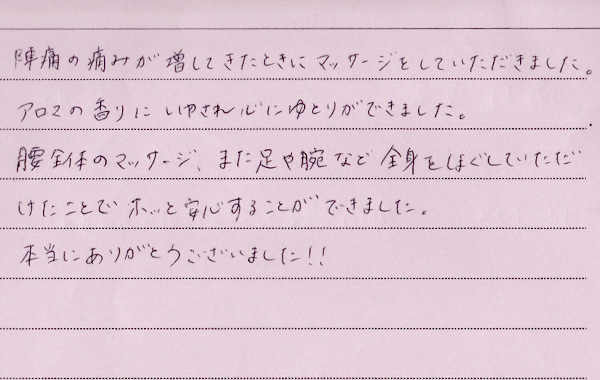 陣痛の痛みが増してきたときにマッサージをしていただきました。
アロマの香りにいやされ心にゆとりができました。
腰全体のマッサージ、また足や腕など全身をほぐしていただ
けたことでホッと安心することができました。
本当にありがとうございました!!